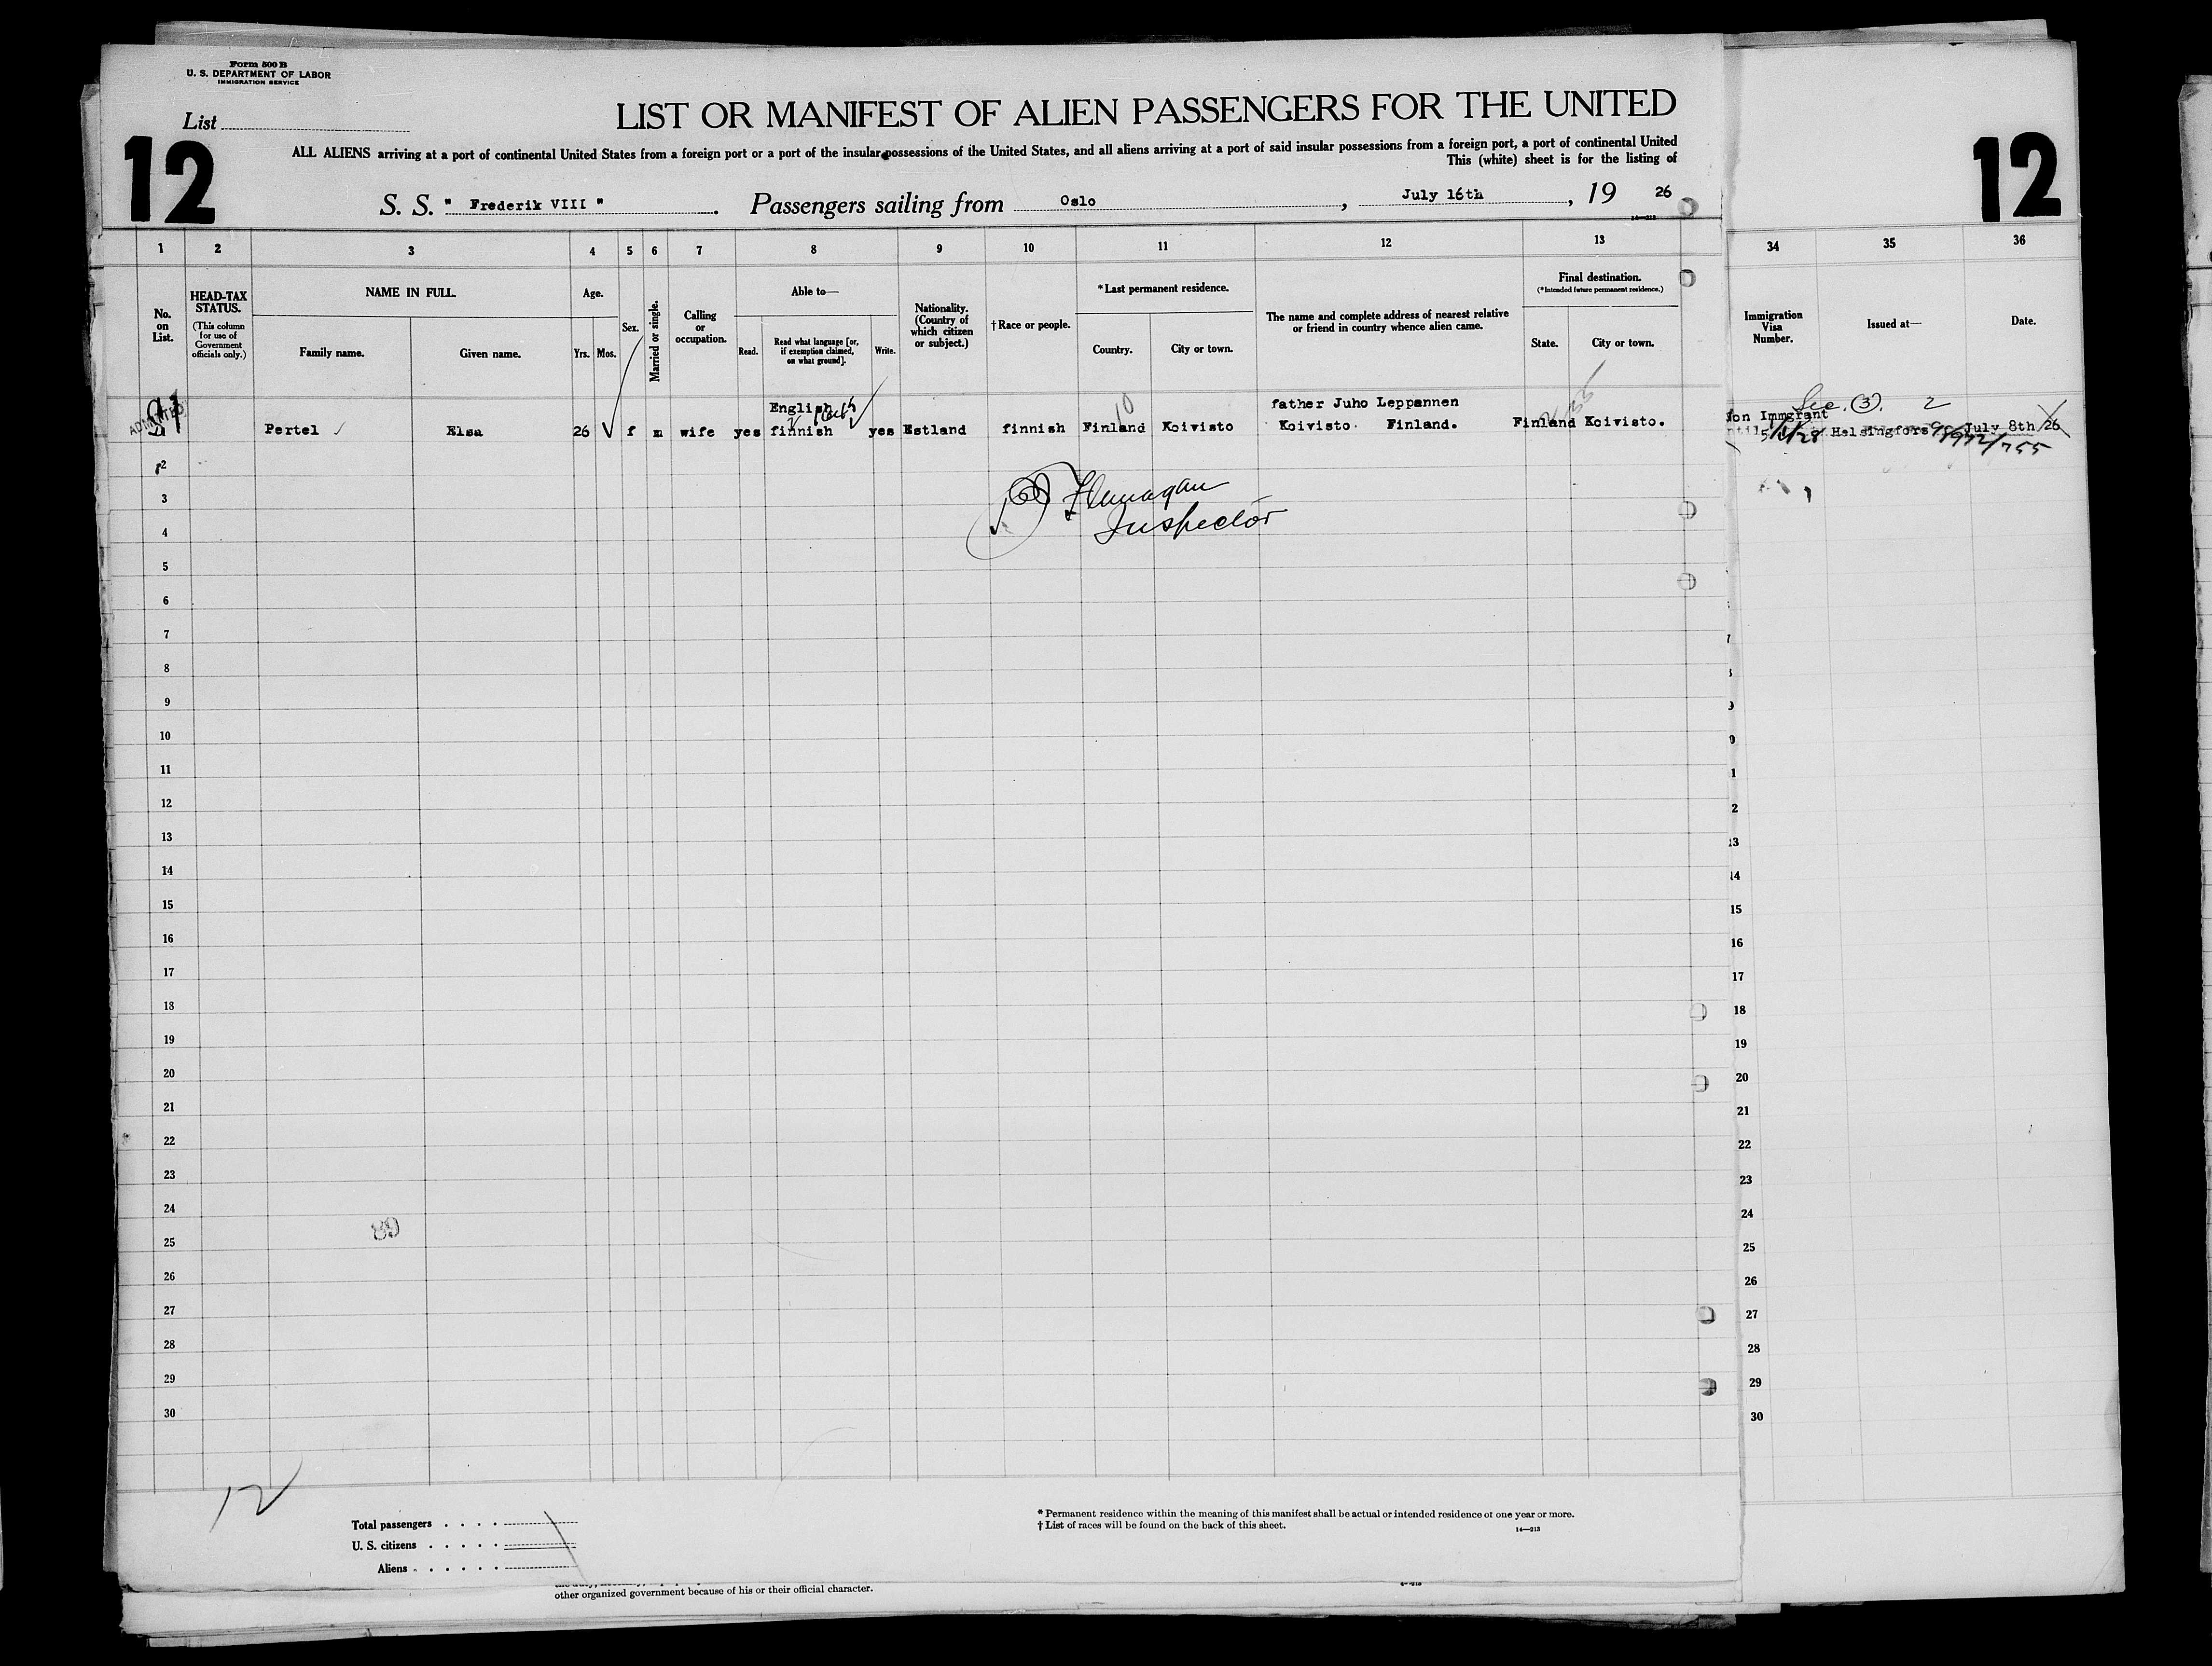 Form 500 B
U. S. DEPARTMENT OF LABOR
IMMIGRATION SERVICE
List
12
LIST OR MANIFEST OF ALIEN PASSENGERS FOR THE UNITED
ALL ALIENS arriving at a port of continental United States from a foreign port or a port of the insular possessions of the United States, and all aliens arriving at a port of said insular possessions from a foreign port, a port of continental United
This (white) sheet is for the listing of
S. S. " Frederik VIII ". Passengers sailing from Oslo, July 16th, 19 26
14—213
12
1 2 3 4 5 6 7 8 9 10 11 12 13 34 35 36
No. on List.
HEAD-TAX STATUS.
(This column for use of Government officials only.)
NAME IN FULL.
Family name. Given name.
Age.
Yrs. Mos.
Sex.
Married or single.
Calling or occupation.
Able to—
Read. Read what language [or, if exemption claimed, on what ground]. Write.
Nationality. (Country of which citizen or subject.)
†Race or people.
*Last permanent residence.
Country. City or town.
The name and complete address of nearest relative or friend in country whence alien came.
Final destination.
(*Intended future permanent residence.)
State. City or town.
Immigration Visa Number.
Issued at—
Date.
ADMITTED
English father Juho Leppannen Sec. (3). 2
Pertel Elsa 26 f m wife yes finnish yes Estland finnish Finland Koivisto Koivisto Finland. Finland Koivisto. Helsingfors July 8th /26
10
on Immgrant
2
3
4
Flanagan
Inspector
5
6
7
8
9
10
11
12
13
14
15
16
17
18
19
20
21
22
23
24
25
26
27
28
29
30
13
14
15
16
17
18
19
20
21
22
23
24
25
26
27
28
29
30
89
12
Total passengers
U. S. citizens
Aliens
* Permanent residence within the meaning of this manifest shall be actual or intended residence of one year or more.
† List of races will be found on the back of this sheet.
14—213
other organized government because of his or their official character.